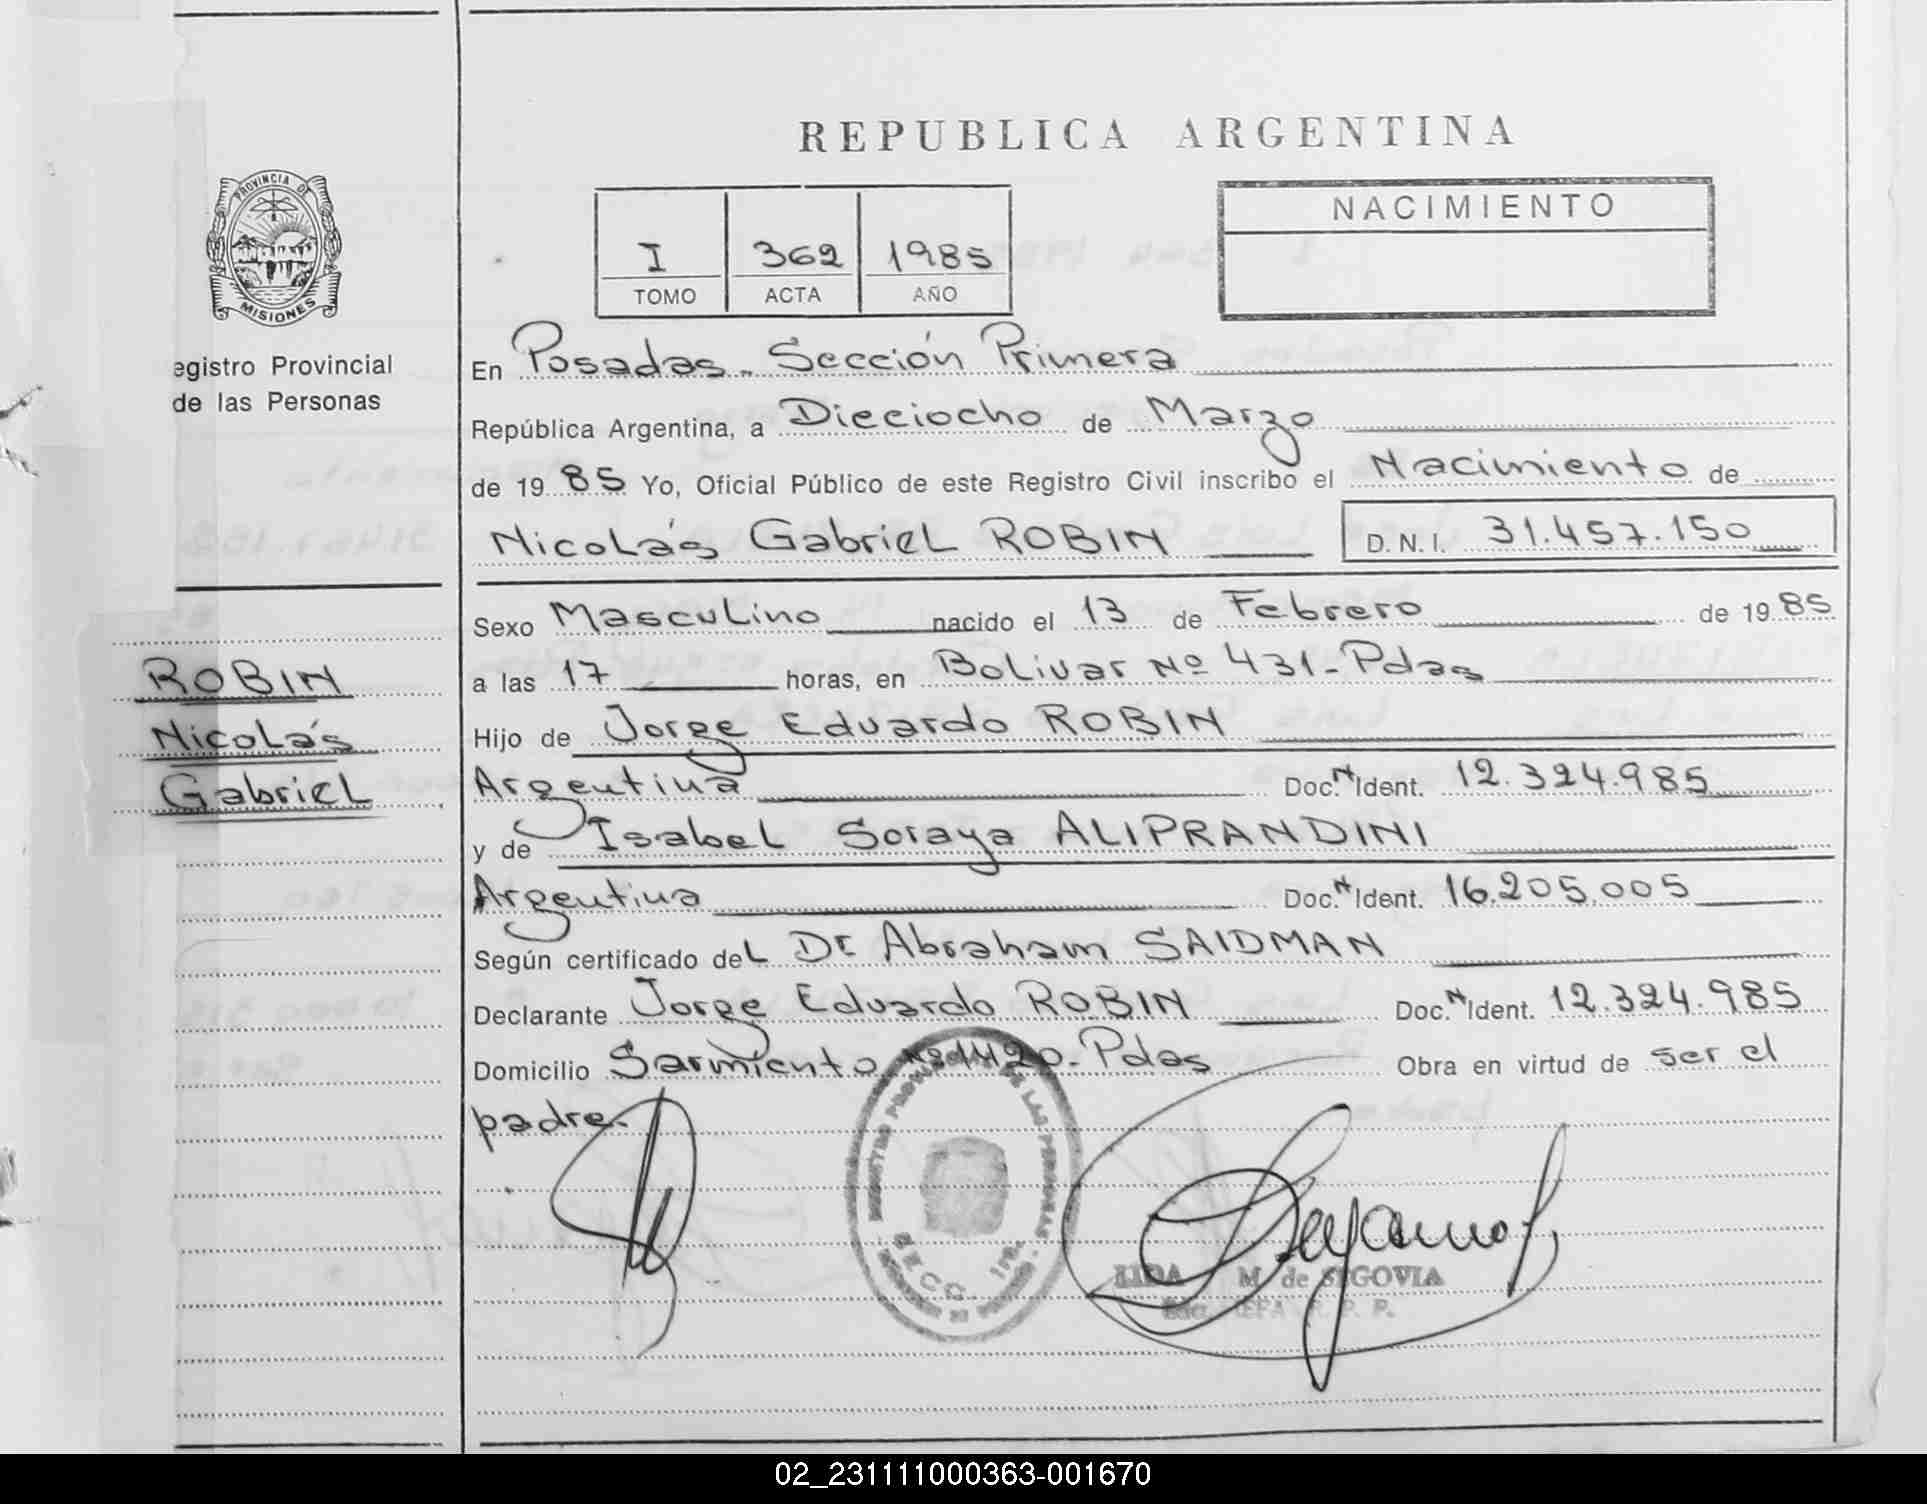 REPUBLICA ARGENTINA
PROVINCIA DE
MISIONES
egistro Provincial
de las Personas
I 362 1985
TOMO ACTA AÑO
NACIMIENTO
En Posadas. Sección Primera
República Argentina, a Dieciocho de Marzo
de 19 85 Yo, Oficial Público de este Registro Civil inscribo el Nacimiento de
Nicolás Gabriel ROBIN D. N. I. 31.457.150
Sexo Masculino nacido el 13 de Febrero de 19 85
a las 17 horas, en Bolivar Nº 431-Pdas
Hijo de Jorge Eduardo ROBIN
Argentina Doc. N Ident. 12.324.985
y de Isabel Soraya ALIPRANDINI
Argentina Doc. N Ident. 16.205.005
Según certificado del Dr Abraham SAIDMAN
Declarante Jorge Eduardo ROBIN Doc. N Ident. 12.324.985
Domicilio Sarmiento Pdas Obra en virtud de ser el
padre.
ROBIN
Nicolás
Gabriel
DE LAS PERSONAS
M. de SEGOVIA
02_231111000363-001670